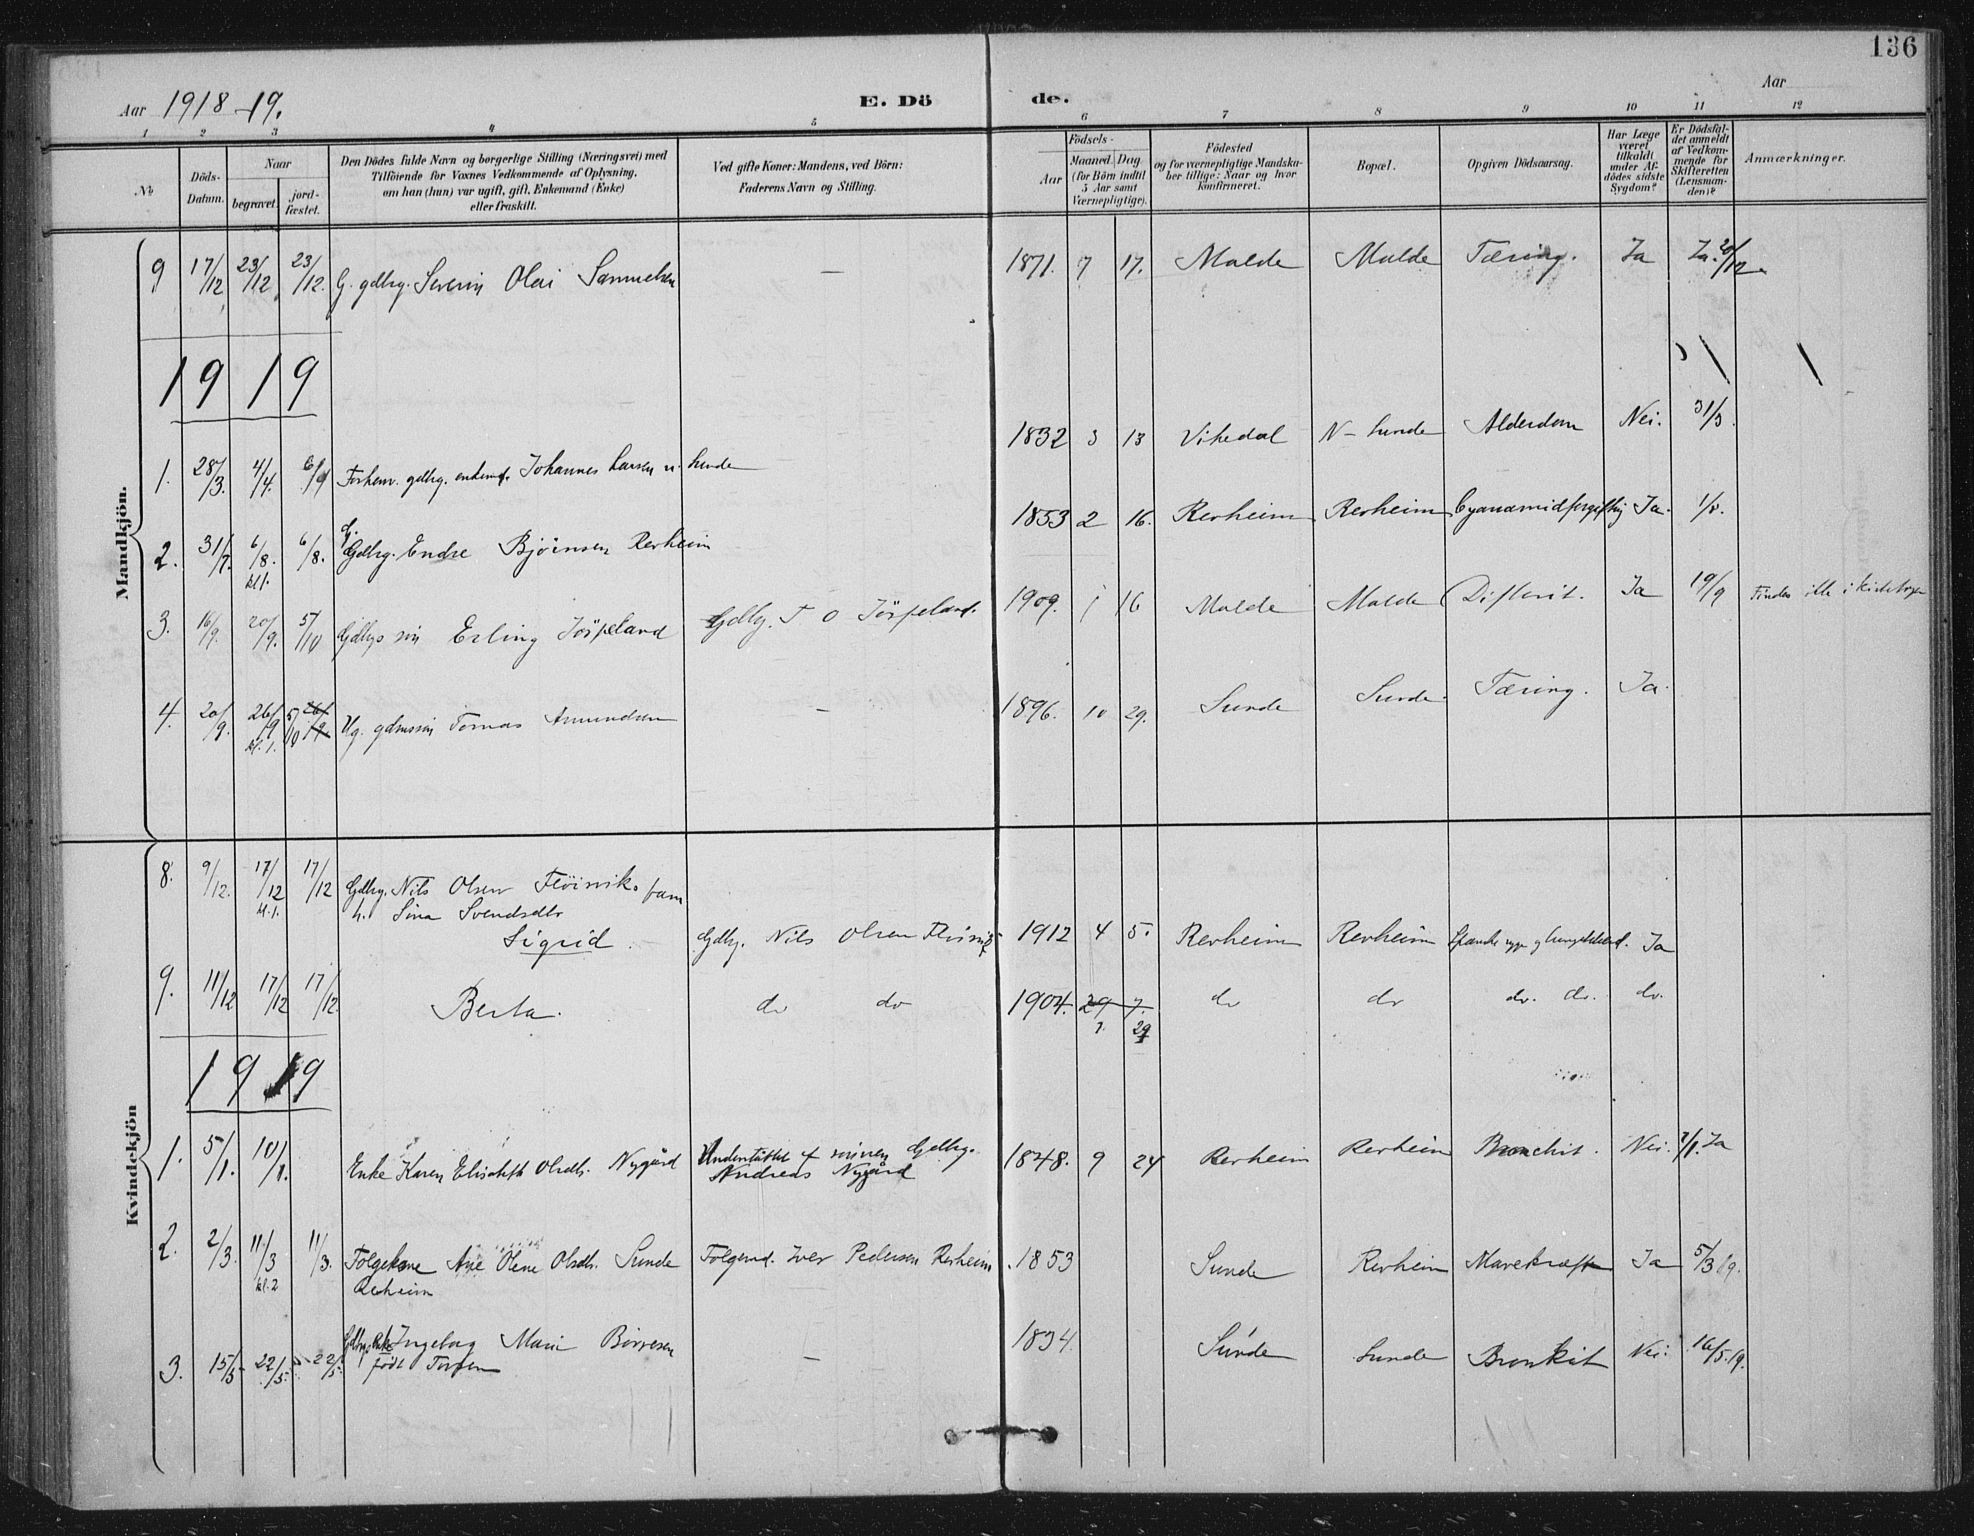 136
Aar 1918-19.
E. Dö de.
Aar
1 2 3 4 5 6 7 8 9 10 11 12
No
Döds-Datum.
Naar
begravet.
jord-fæstet.
Den Dödes fulde Navn og borgerlige Stilling (Næringsvei) med
Tilföiende for Voxnes Vedkommende af Oplysning,
om han (hun) var ugift, gift, Enkemand (Enke)
eller fraskilt.
Ved gifte Koner: Mandens, ved Börn:
Faderens Navn og Stilling.
Födsels-
Aar
Maaned. Dag.
(for Börn indtil
5 Aar samt
Værnepligtige).
Födested
og for værnepligtige Mandska-
ber tillige: Naar og hvor
konfirmeret.
Bopæl.
Opgiven Dödsaarsag.
Har Læge
været
tilkaldt
under Af-
dödes sidste
Sygdom?
Er Dödsfal-
det anmeldt
af Vedkom-
mende for
Skifteretten
(Lensman-
den)?
Anmærkninger.
Mandkjön.
9 17/12 23/12 23/12. G. gdbrg. Severin Olai Samuelsen — 1871. 7 17. Malde Malde Tæring. Ja Ja. 20/12
1919
1. 28/3. 4/4. 6/4 Forhenv. gdbrg. enkemd. Johannes Larsen n. Sunde 1832 3 13 Vikedal N-Sunde Alderdom Nei. 31/3.
2. 31/7. 6/8. kl. 1. 6/8. G. Gdbrg. Endre Bjørnsen Revheim 1853 2 16. Revheim Revheim Cyanamidforgiftng Ja. 1/8.
3. 16/9. 20/9. 5/10 Gdbgs søn Erling Jøspeland Gdbg. T O Jøspeland. 1909. 1 16 Malde Malde Difterit. Ja 19/9 Findes ikke i kirkebogen
4. 20/9. 26/9 kl. 1. 5/10 26/9. Ug. gdmssøn Tomas Amundsen — 1896. 10 29. Sunde Sunde Tæring. Ja.
Kvindekjön
8. 9/12. 17/12 kl. 1. 17/12 Gdbrg. Nils Olsen Fløisviks fam
h. Sina Svendsdtr
Sigrid Gdbg. Nils Olsen Fløisvik 1912 4 5. Revheim Revheim Spanske syge g lungebetend. Ja
9. 11/12 17/12 17/12. Berta. do do 1904. 29 7. do do do. do. do.
1. 29
1919
1. 5/1. 10/1. Enke Karen Elisabeth Olsdtr. Nygård Understøttet af sønnen Gdbrg.
Andreas Nygård 1848. 9 24 Revheim Revheim Bronchit. Nei. 7/1. Ja
2. 2/3. 11/3 kl. 2 11/3. Folgekone Ane Olene Olsdtr. Sunde
Revheim Folgemd. Iver Pedersen Revheim 1853 Sunde Revheim Mavekræft Ja 5/3 19.
3. 15/5 22/5. 22/5. Gdbrg. Enke Ingeborg Marie Børresen
født — 1834 Sunde Sunde Bronkit Nei. 16/5. 19.